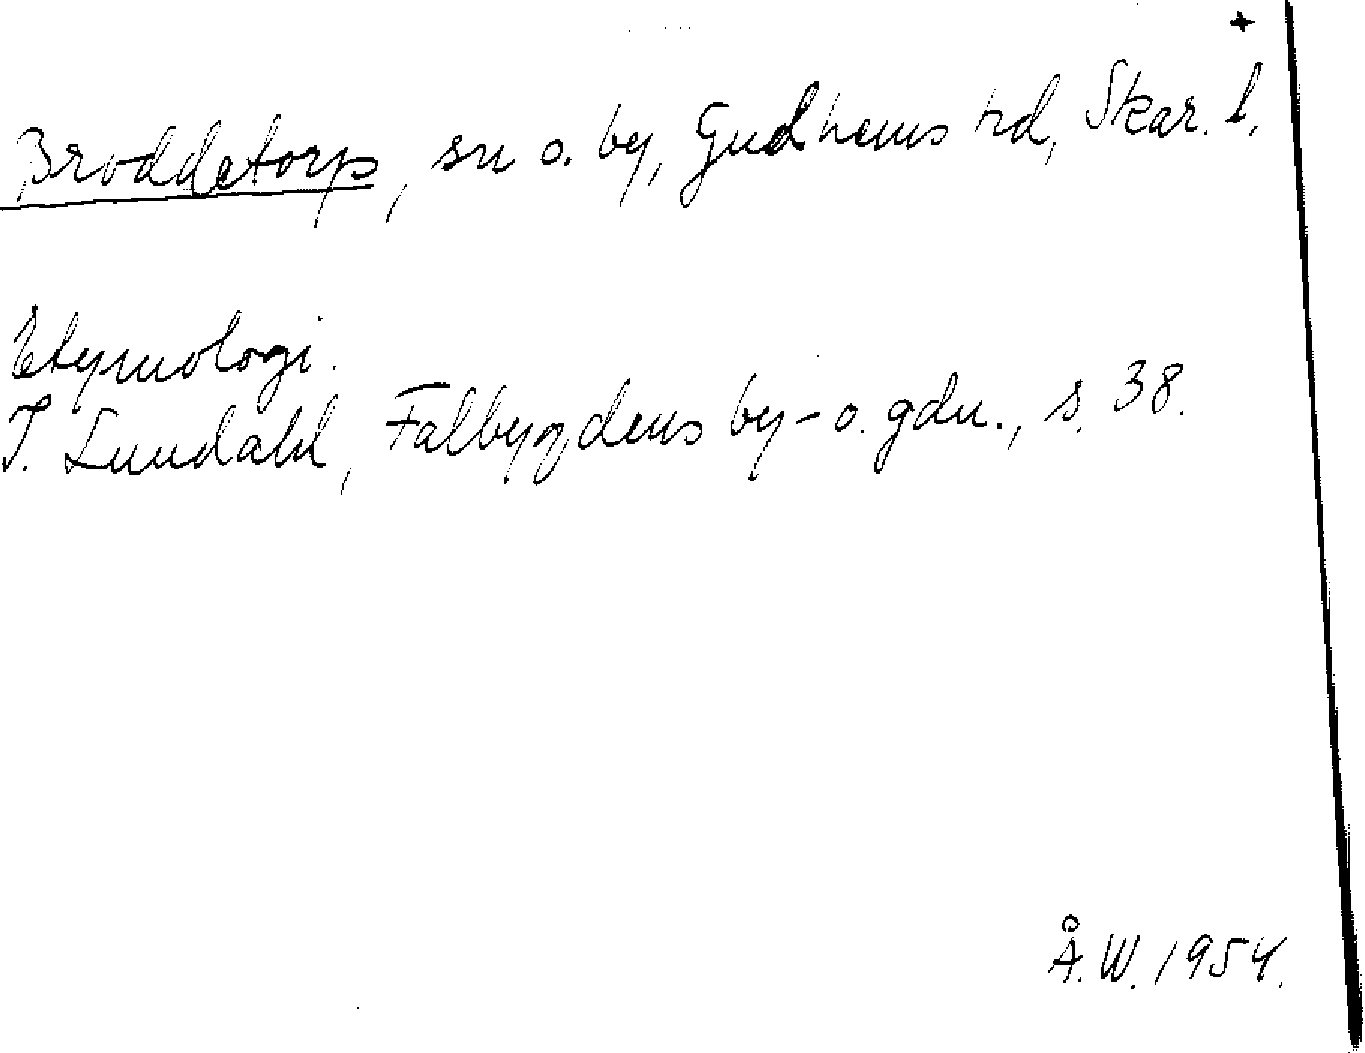 +
Broddetorp, sn o. by, Gudhems hd, Skar. l.
Etymologi.
I. Lundahl, Falbygdens by- o. gdn., s. 38.
Å. W. 1954.